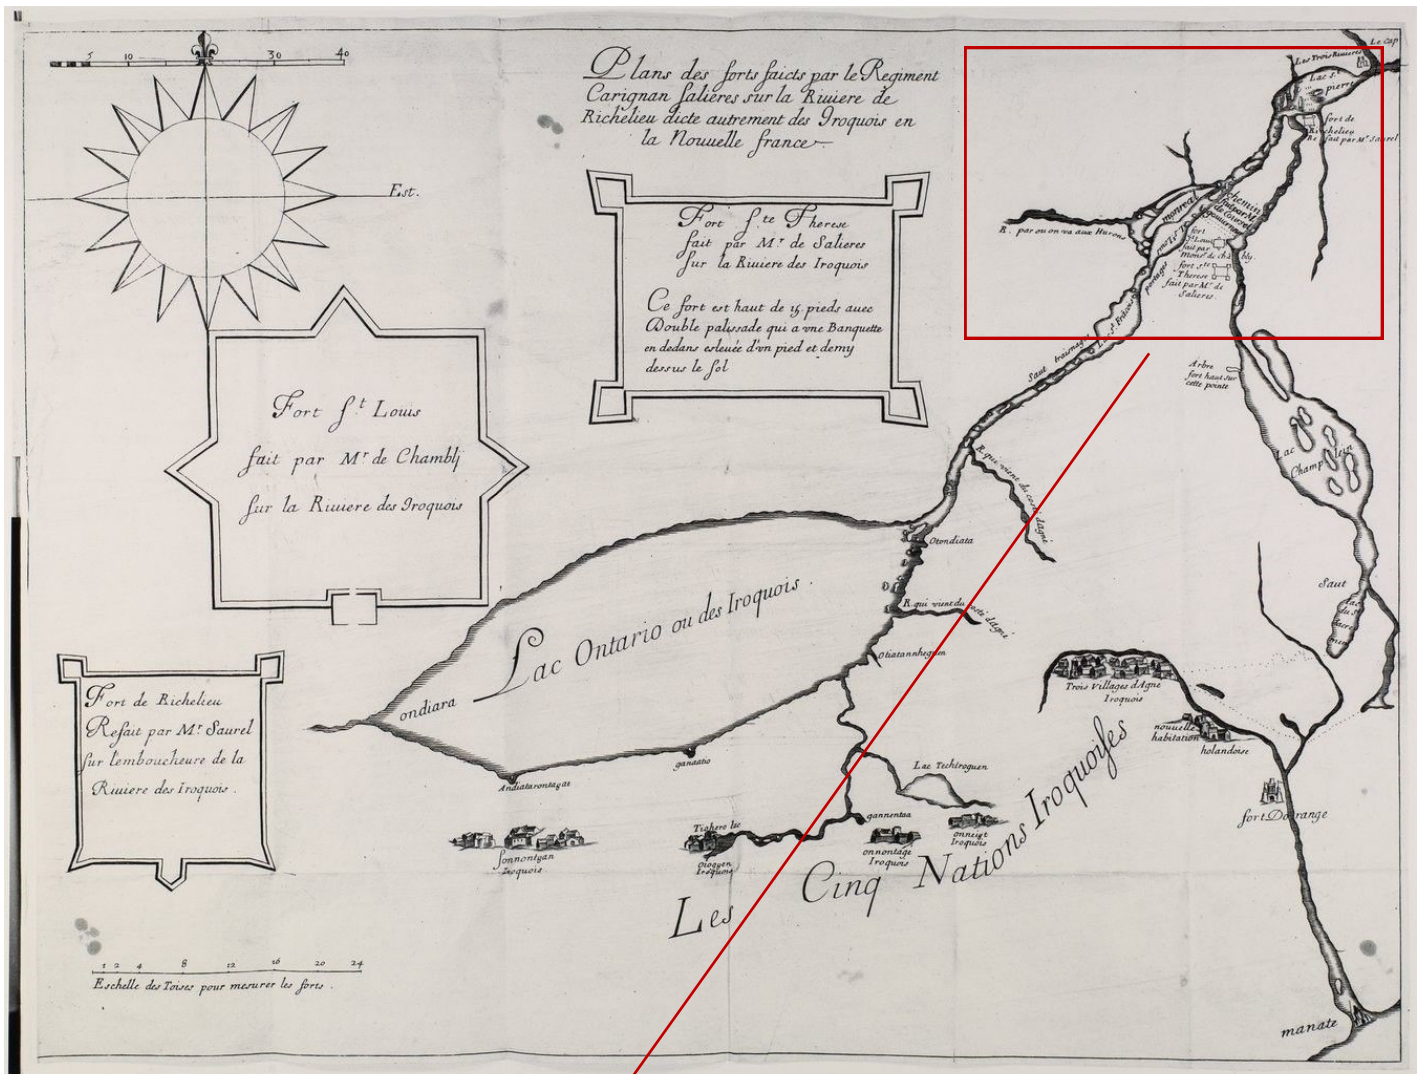 5 10 30 40
Plans des forts faicts par le Regiment
Carignan salieres sur la Riuiere de
Richelieu dicte autrement des Iroquois en
la Nouuelle france
Est.
Fort S.te Therese
fait par M.r de Salieres
sur la Riuiere des Iroquois
Ce fort est haut de 15 pieds auec
Double palissade qui a vne Banquette
en dedans esleuée d'vn pied et demy
dessus le sol
Fort S.t Louis
fait par M.r de Chamblÿ
sur la Riuiere des Iroquois
Fort de Richelieu
Refait par M.r Saurel
sur l'emboucheure de la
Riuiere des Iroquois.
1 2 4 8 12 16 20 24
Eschelle des Toises pour mesurer les forts.
Le Cap
Les Trois Riuieres
Lac S.t
pierre
fort de
Richelieu
Re fait par M.r Saurel
chemin
fait par M.
de Courcel
gouuerneur
monreal
R. par ou on va aux Hurons
fort
S.t Louis
fait par
Mons.r de chably
fort S.te
Therese
fait par M.r de
Salieres.
portages
Lac S.t François
Saut
Arbre
fort haut sur
cette pointe
Lac
Champlein
R. qui vient du costé d'agné
Otondiata
R. qui vient du costé d'agné
Lac Ontario ou des Iroquois.
ondiara
Otiatannheguen
Andiatarontagat
ganaatio
Saut
lac
du S.t
Sacre
ment
Trois Villages d'Agné
Iroquois
nouuelle
habitation
holandoise
Lac Techiroguen
Tiohero lac
gannentaa
Sonnontoüan
Iroquois
Oioguen
Iroquois
onnontagé
Iroquois
onneiout
Iroquois
fort Dorange
Les Cinq Nations Iroquoises
manate